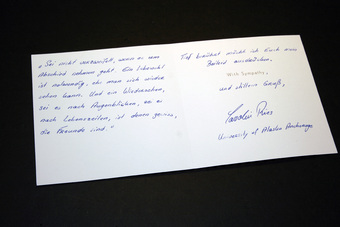 „Sei nicht verzweifelt, wenn es um
Abschied nehmen geht. Ein Lebewohl
ist notwendig, ehe man sich wieder
sehen kann. Und ein Wiedersehen,
sei es nach Augenblicken, sei es
nach Lebenszeiten, ist denen gewiss,
die Freunde sind."
Tief berührt möcht ich Euch mein
Beileid ausdrücken.
With Sympathy
und stillem Gruß,
University of Alaska Anchorage